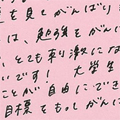 を見とがんばり
は、勉強をがんば
、とても刺激にな
いです! 大学生
ことが自由にでき
目標をもしがんに